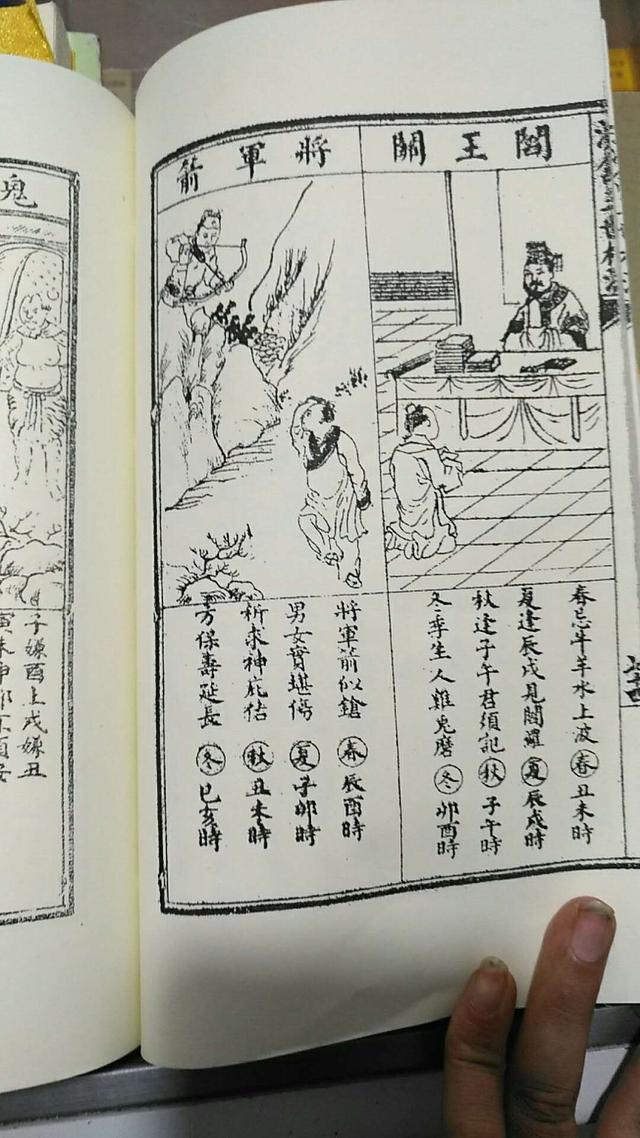 閻王關
春忌牛羊水上波 春 丑未時
夏逢辰戌見閻羅 夏 辰戌時
秋逢子午君須記 秋 子午時
冬季生人難兎磨 冬 卯酉時
將軍箭
將軍箭似鎗 春 辰酉時
男女實堪傷 夏 子卯時
祈求神庇佑 秋 丑未時
方保壽延長 冬 巳亥時
鬼
子嫌酉上戌嫌丑